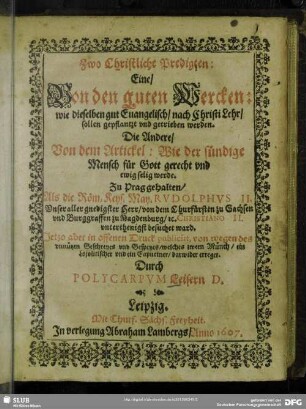 Zwo Christliche Predigten:
Eine/
Von den guten Wercken:
wie dieselben gut Euangelisch/ nach Christi Lehr/
sollen gepflantzt vnd getrieben werden.
Die Andere/
Von dem Artickel: Wie der sündige
Mensch für Gott gerecht vnd
ewig selig werde.
Zu Prag gehalten/
Als die Röm. Keys. May. RVDOLPHVS II.
Vnser aller gnedigster Herr/ von dem Churfürsten zu Sachsen
vnd Burggraffen zu Magdenburg/ etc. CHRISTIANO II.
vnterthenigst besuchet ward.
Jetzo aber in offenen Druck publicirt, von wegen des
vnnützen Geschreyes vnd Geschwetzes/ welches zween Münch/ ein
Jesuitischer vnd ein Capuciner/ darwider erreget.
Durch
POLYCARPVM Leisern D.
Leipzig.
Mit Churf. Sächs. Freyheit.
In verlegung Abraham Lambergs/ Anno 1607.
SLUB
Wir führen Wissen.